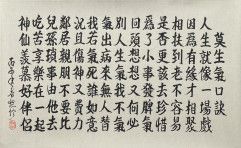 莫生氣口訣
人生就像一場戲
因爲有緣才相聚
相扶到老不容易
是否更該去珍惜
爲了小事發脾氣
回頭想想又何必
別人生氣我不氣
氣出病來無人替
我若氣死誰如意
況且傷神又費力
鄰居親朋不要比
兒孫瑣事由他去
吃苦享樂在一起
神仙羨慕好伴侶